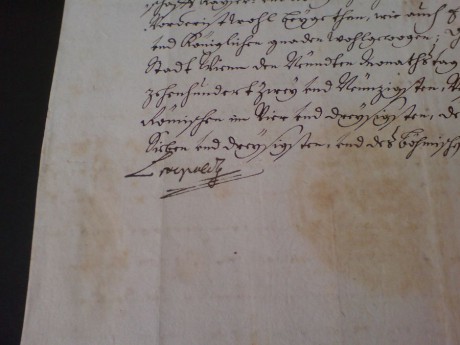 wohl beygethan, wie auch
und Königlichen gnaden wohlgewogen;
Stadt Wienn den Neündten Monathstag
zehenhundert Zwey und Neünzigsten,
Römischen im Vier und dreysigsten, de
Siben und dreysigsten, und des böhmisch
Leopold